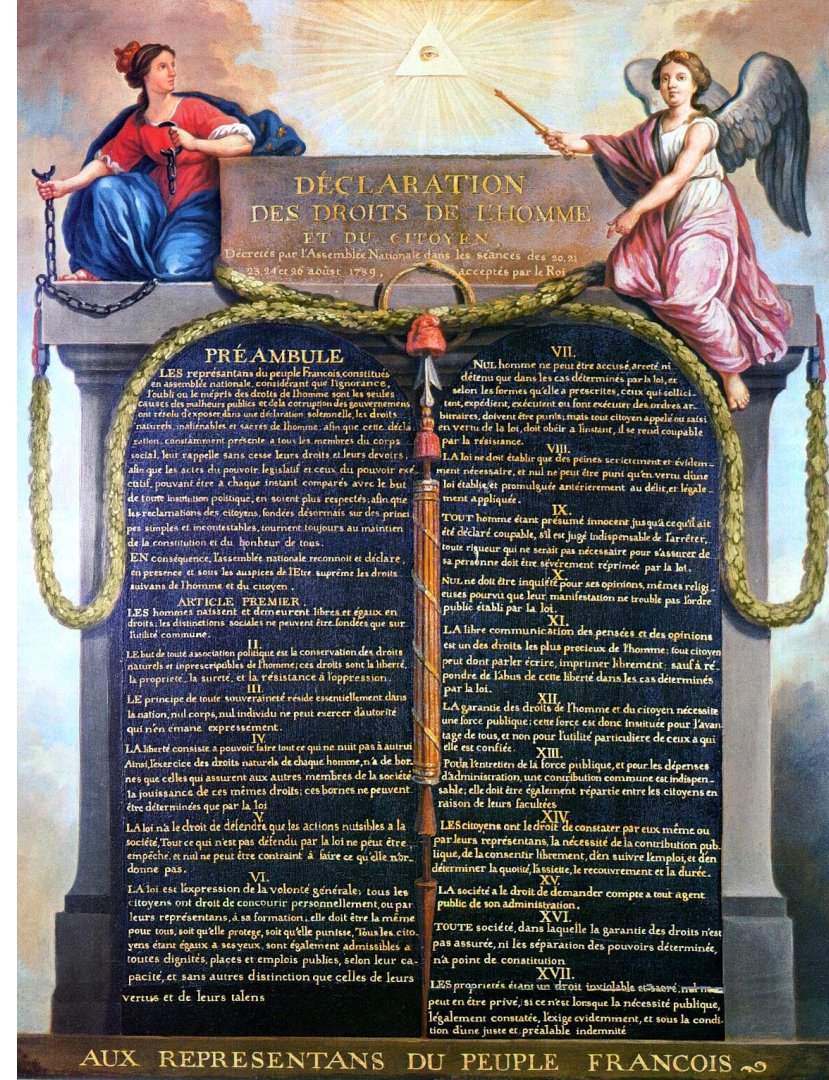 DÉCLARATION
DES DROITS DE L'HOMME
ET DU CITOYEN,
Décretés par l'Assemblée Nationale dans les séances des 20, 21
23, 24 et 26 aoûst 1789, acceptés par le Roi
PRÉAMBULE
LES représantans du peuple François, constitués
en assemblée nationale, considérant que l'ignorance,
l'oubli ou le mépris des droits de l'homme sont les seules
causes des malheurs publics et de la corruption des gouvernemens
ont résolu d'exposer dans une déclaration solemnelle, les droits
naturels, inaliénables et sacrés de l'homme; afin que cette décla
ration, constamment présente a tous les membres du corps
social, leur rappelle sans cesse leurs droits et leurs devoirs;
afin que les actes du pouvoir législatif et ceux du pouvoir exé
cutif, pouvant être a chaque instant comparés avec le but
de toute institution politique, en soient plus respectés; afin que
les reclamations des citoyens, fondées désormais sur des princi
pes simples et incontestables, tournent toujours au maintien
de la constitution et du bonheur de tous.
EN conséquence, l'assemblée nationale reconnoit et déclare,
en presence et sous les auspices de l'Etre suprême les droits
suivans de l'homme et du citoyen.
ARTICLE PREMIER.
LES hommes naissent et demeurent libres et égaux en
droits; les distinctions sociales ne peuvent être fondées que sur
l'utilité commune.
II.
LE but de toute association politique est la conservation des droits
naturels et inprescriptibles de l'homme; ces droits sont la liberté,
la propriete, la sureté, et la résistance à l'oppression.
III.
LE principe de toute souveraineté réside essentiellement dans
la nation, nul corps, nul individu ne peut exercer d'autorité
qui n'en émane expressement.
IV.
LA liberté consiste a pouvoir faire tout ce qui ne nuit pas à autrui
Ainsi, l'exercice des droits naturels de chaque homme, n'a de bor
nes que celles qui assurent aux autres membres de la société
la jouissance de ces mêmes droits; ces bornes ne peuvent
être déterminées que par la loi
V.
LA loi n'a le droit de défendre que les actions nuisibles a la
société. Tout ce qui n'est pas défendu par la loi ne peut être
empêche, et nul ne peut être contraint à faire ce qu'elle n'or-
donne pas.
VI.
LA loi est l'expression de la volonté générale; tous les
citoyens ont droit de concourir personnellement, ou par
leurs représentans, à sa formation; elle doit être la même
pour tous, soit qu'elle protege, soit qu'elle punisse, Tous les cito-
yens étant égaux a ses yeux, sont également admissibles a
toutes dignités, places et emplois publics, selon leur ca-
pacité, et sans autres distinction que celles de leurs
vertus et de leurs talens
VII.
NUL homme ne peut être accusé, arreté, ni
détenu que dans les cas déterminés par la loi, et
selon les formes qu'elle a prescrites, ceux qui sollici-
tent, expédient, exécutent ou font exécuter des ordres ar-
bitraires, doivent être punis; mais tout citoyen appelé ou saisi
en vertu de la loi, doit obéir a l'instant, il se rend coupable
par la résistance.
VIII.
LA loi ne doit établir que des peines strictement et évidem-
ment nécessaire, et nul ne peut être puni qu'en vertu d'une
loi établie et promulguée antérierement au délit, et légale-
ment appliquée.
IX.
TOUT homme étant présumé innocent jusqu'a ce qu'il ait
été déclaré coupable, s'il est jugé indispensable de l'arrêter,
toute rigueur qui ne serait pas nécessaire pour s'assurer de
sa personne doit être sévèrement réprimée par la loi.
X.
NUL ne doit être inquiété pour ses opinions, mêmes religi-
euses pourvu que leur manifestation ne trouble pas l'ordre
public établi par la loi.
XI.
LA libre communication des pensées et des opinions
est un des droits les plus precieux de l'homme; tout citoyen
peut dont parler écrire, imprimer librement; sauf à ré-
pondre de l'abus de cette liberté dans les cas déterminés
par la loi.
XII.
LA garantie des droits de l'homme et du citoyen nécessite
une force publique; cette force est donc instituée pour l'avan-
tage de tous, et non pour l'utilité particuliere de ceux a qui
elle est confiée.
XIII.
POUR l'entretien de la force publique, et pour les dépenses
d'administration, une contribution commune est indispen-
sable; elle doit être également répartie entre les citoyens en
raison de leurs facultées
XIV.
LES citoyens ont le droit de constater par eux même ou
par leurs représentans, la nécessité de la contribution pub-
lique, de la consentir librement, d'en suivre l'emploi, et d'en
déterminer la quotité, l'assiette, le recouvrement et la durée.
XV.
LA société a le droit de demander compte a tout agent
public de son administration.
XVI.
TOUTE société, dans laquelle la garantie des droits n'est
pas assurée, ni les séparation des pouvoirs déterminée,
n'a point de constitution
XVII.
LES proprietés étant un droit inviolable et sacré, nul ne
peut en être privé, si ce n'est lorsque la nécessité publique,
légalement constatée, l'exige evidemment, et sous la condi-
tion d'une juste et préalable indemnité
AUX REPRESENTANS DU PEUPLE FRANCOIS